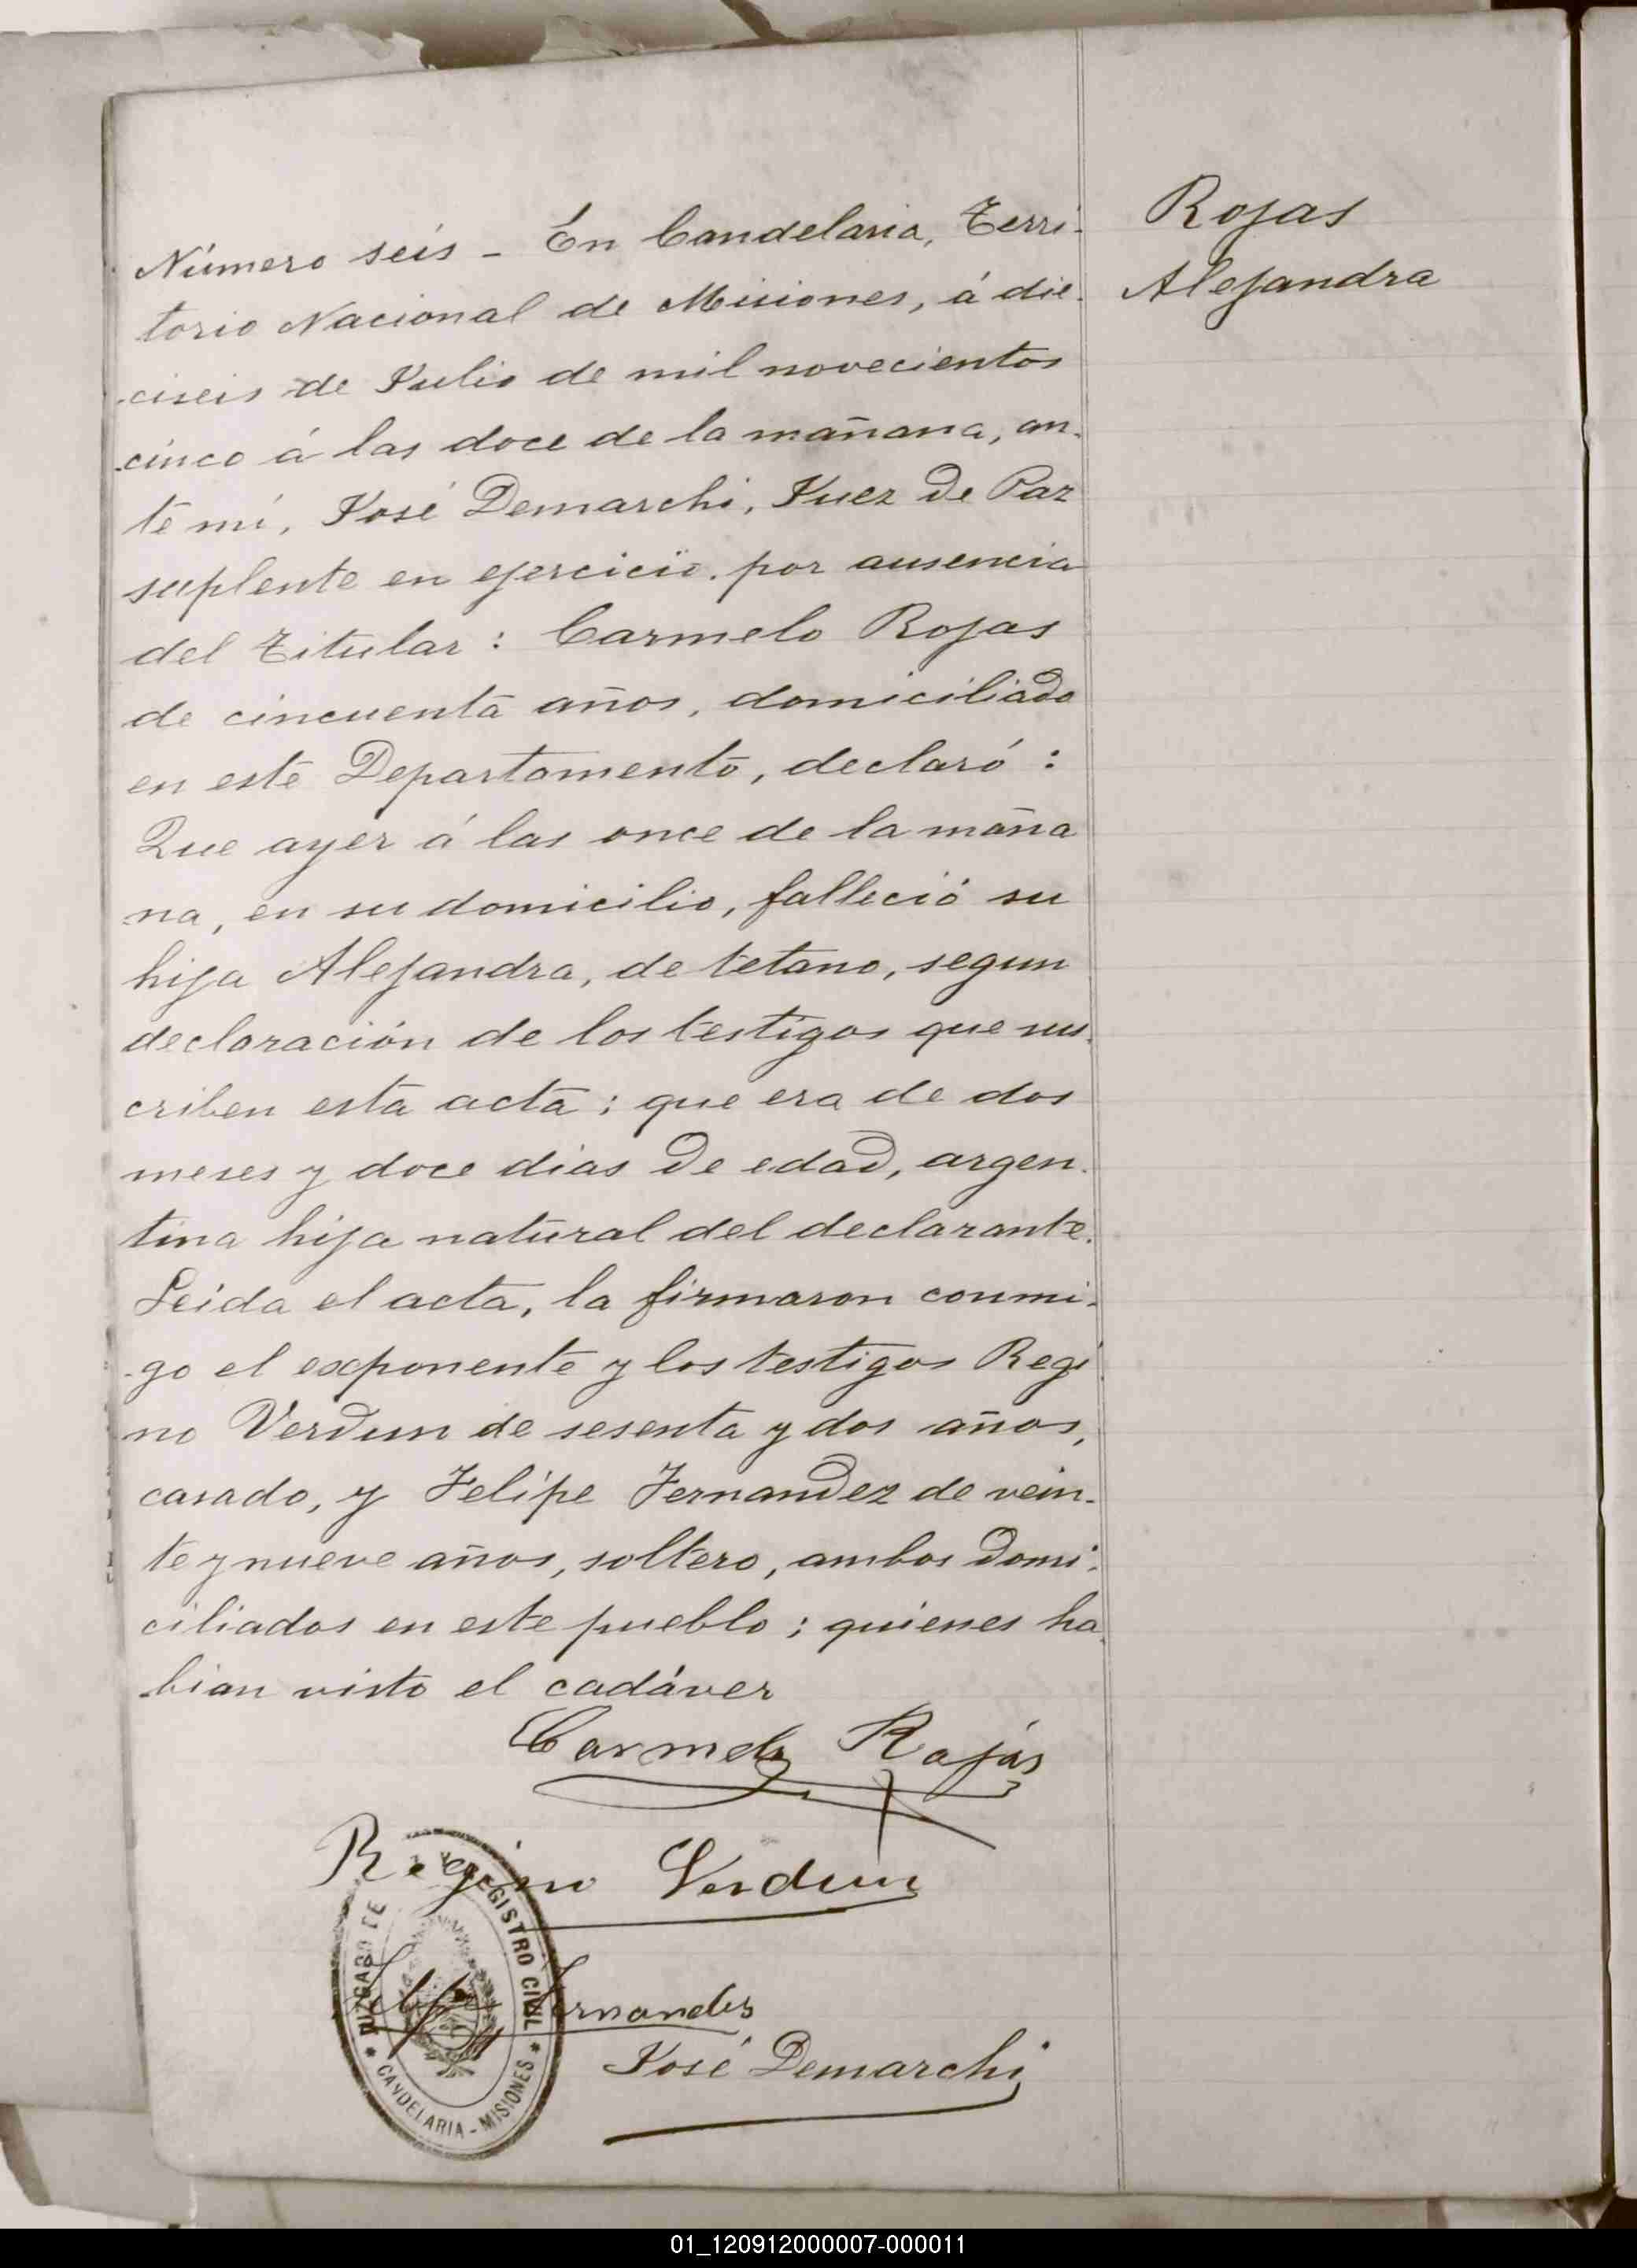 Número seis - En Candelaria, Terri-
torio Nacional de Misiones, á die-
ciseis de Julio de mil novecientos
cinco á las doce de la mañana, an-
te mí, José Demarchi, Juez de Paz
suplente en ejercicio, por ausencia
del Titular: Carmelo Rojas
de cincuenta años, domiciliado
en este Departamento, declaró:
Que ayer á las once de la maña
na, en su domicilio, falleció su
hija Alejandra, de tetano, segun
declaración de los testigos que sus-
criben esta acta; que era de dos
meses y doce dias de edad, argen-
tina hija natural del declarante.
Leida el acta, la firmaron conmi-
go el exponente y los testigos Regi
no Verdun de sesenta y dos años,
casado, y Felipe Fernandez de vein-
te y nueve años, soltero, ambos domi-
ciliados en este pueblo; quienes ha
bian visto el cadáver
Carmelo Rojas
Regino Verdun
Felipe Fernandes
José Demarchi
JUZGADO DE Y REGISTRO CIVIL
* CANDELARIA - MISIONES *
Rojas
Alejandra
01_120912000007-000011